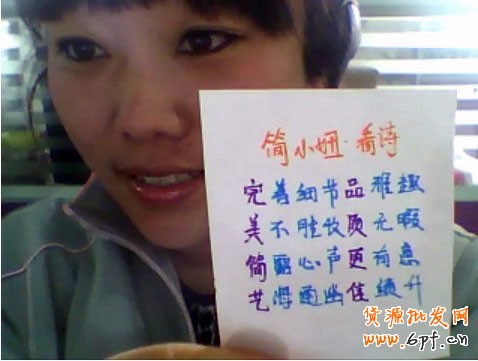 简小妞·看诗
完善细节品雅趣
美不胜收质无暇
简露心声更有意
艺得通幽佳绩升
货源批发网
www.6pf.cn